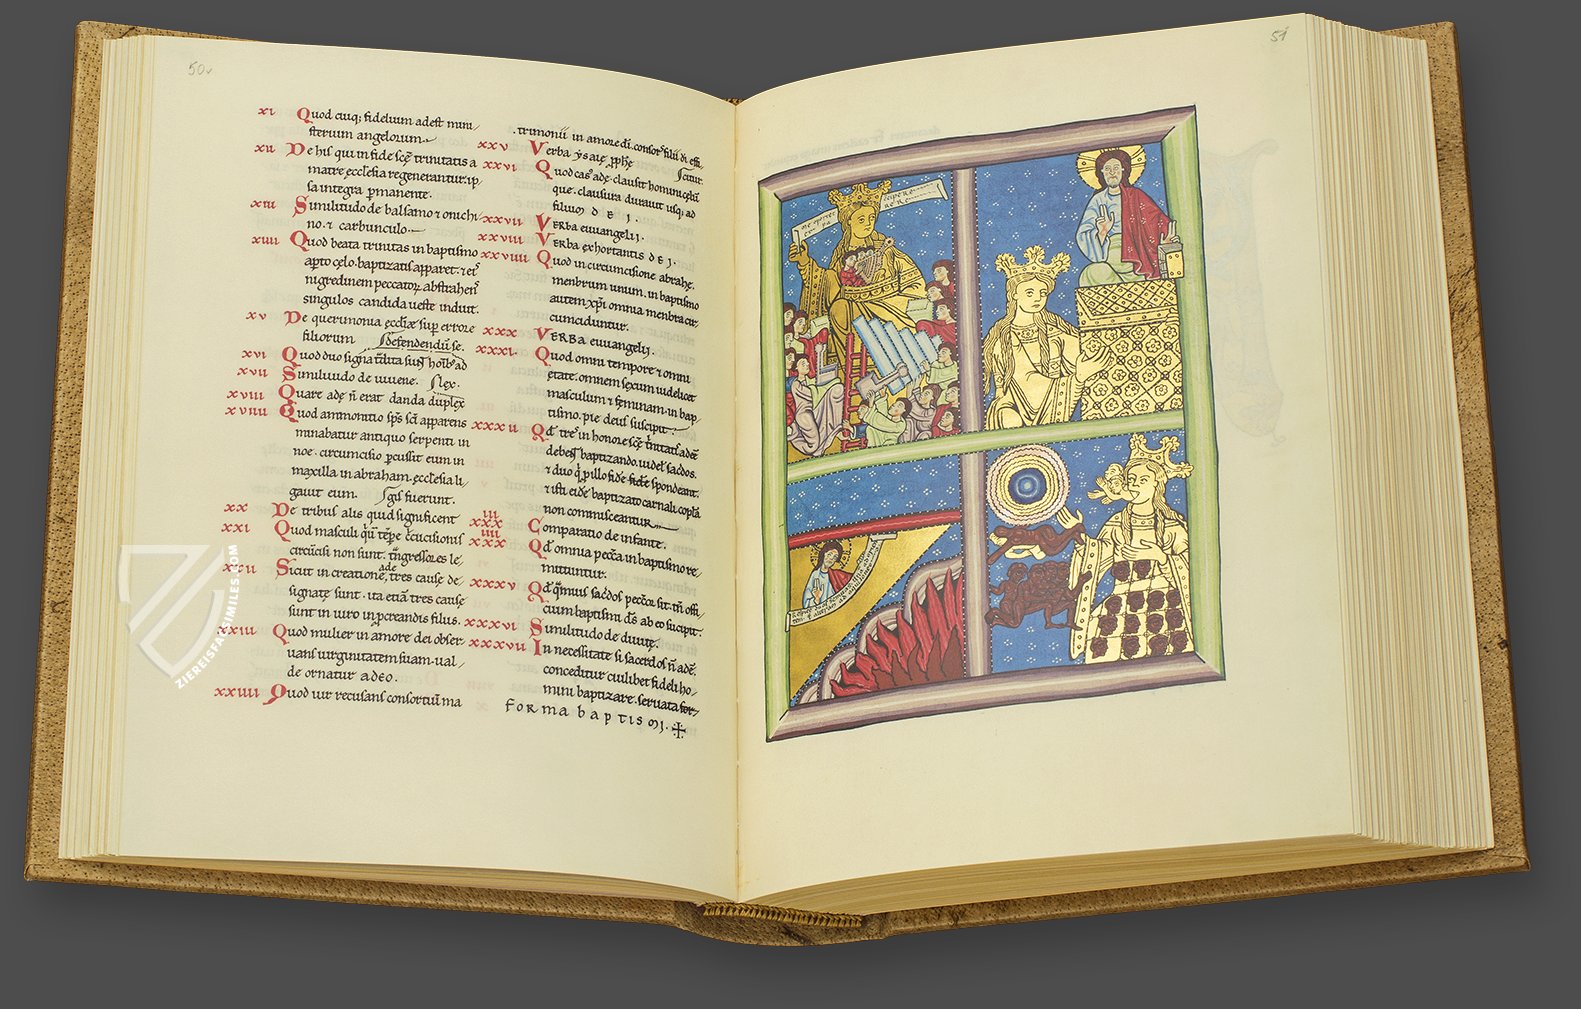 50v
xi Quod cuiq; fidelium adest mini/
sterium angelorum
xii De his qui in fide scę trinitatis a
matre ecclesia regenerantur. ip/
sa integra permanente.
xiii Similitudo de balsamo ⁊ onichi/
no. ⁊ carbunculo.
xiiii Quod beata trinitas in baptismo
apto celo. baptizatis apparet.
nigredinem peccator abstrahens
singulos candida ueste induit.
xv De querimonia ecclię sup errore
filiorum defendendū se.
xvi Quod duo signa
xvii Similitudo de iuuene. lex.
xviii Quare adę n̄ erat danda duplex
xviiii Quod ammonitio sps sci apparens
minabatur antiquo serpenti in
noe. circumcisio percussit eum in
maxilla in abraham. ecclesia li/
gauit eum. gis fuerunt.
xx De tribus alis quid significent
xxi Quod masculi
circūcisi non sunt. t̄nsgressores le/
xxii Sicut in creatione ade, tres cause de/
signatę sunt. ita etiā tres cause
sunt in uiro in procreandis filiis.
xxiii Quod mulier in amore dei obser/
uans uirginitatem suam. ual/
de ornatur a deo.
xxiiii Quod uir recusans consortiū ma
trimonii in amore di. consors filii di effi/
citur.
xxv Verba ysaię pphę
xxvi Quod cas adę. clausit homini celū
que. clausura durauit usq; ad
filium dei.
xxvii Verba euuangelii.
xxviii Verba exhortantis dei.
xxviiii Quod in circumcisione abrahę.
menbrum unum. in baptismo
autem xp̄i omnia menbra cir/
cumciduntur.
xxx Verba euuangelii.
xxxi Quod omni tempore ⁊ omni
etate. omnem sexum uidelicet
masculum ⁊ feminam. in bap/
tismo. pie deus suscipit.
xxxii Qd tres in honore scę trinitatis adeē
debent baptizando. uidel sacdos.
⁊ duo q pillo fide spondeant.
⁊ isti eidē baptizato carnali copla
non commisceantur
xxxiii Comparatio de infante.
xxxiiii Qd omnia peccata in baptismo re/
mittuntur.
xxxv Qd quāuis sacdos peccator sit. tn̄ offi/
cium baptismi ds ab eo suscipit.
xxxvi Similitudo de diuite.
xxxvii In necessitate si sacerdos n̄ adē.
conceditur cuilibet fideli ho/
mini baptizare. seruata for/
forma baptismi.
51
me oportet
concipere
ZIEREISFACSIMILES.COM